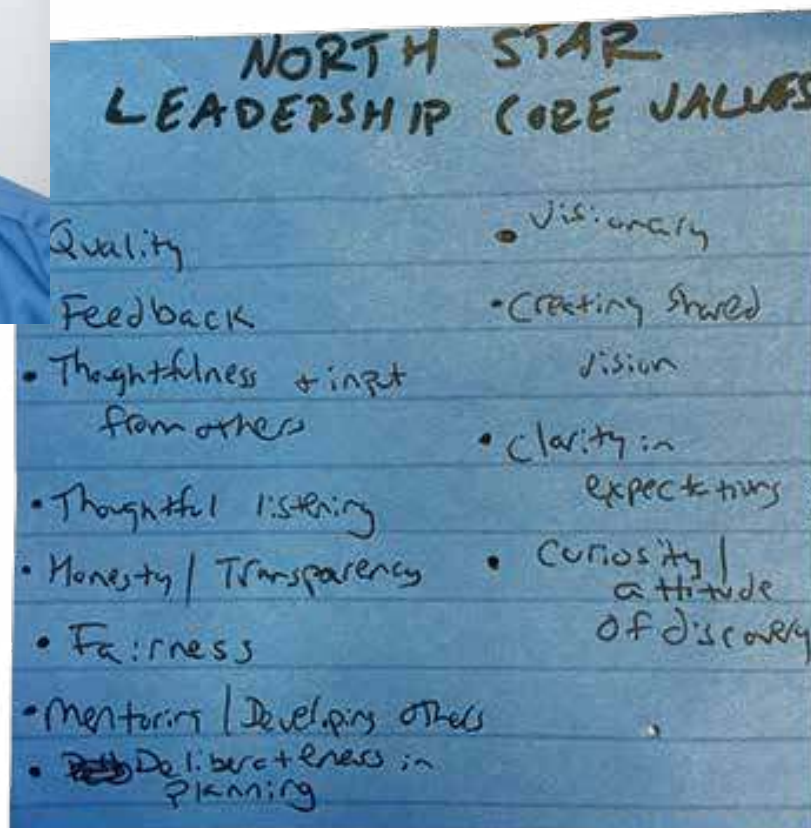 NORTH STAR
LEADERSHIP CORE VALUES
Quality
Feedback
• Thoughtfulness + input
from others
• Thoughtful listening
• Honesty / Transparency
• Fairness
• Mentoring / Developing others
• Deliberateness in
planning
• Visionary
• Creating shared
vision
• Clarity in
expectations
• Curiosity /
attitude
of discovery